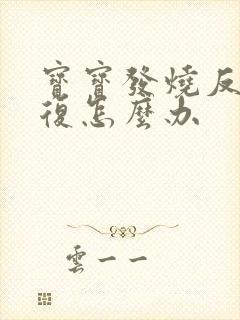 寶寶發燒反
復怎麼办
雲一一